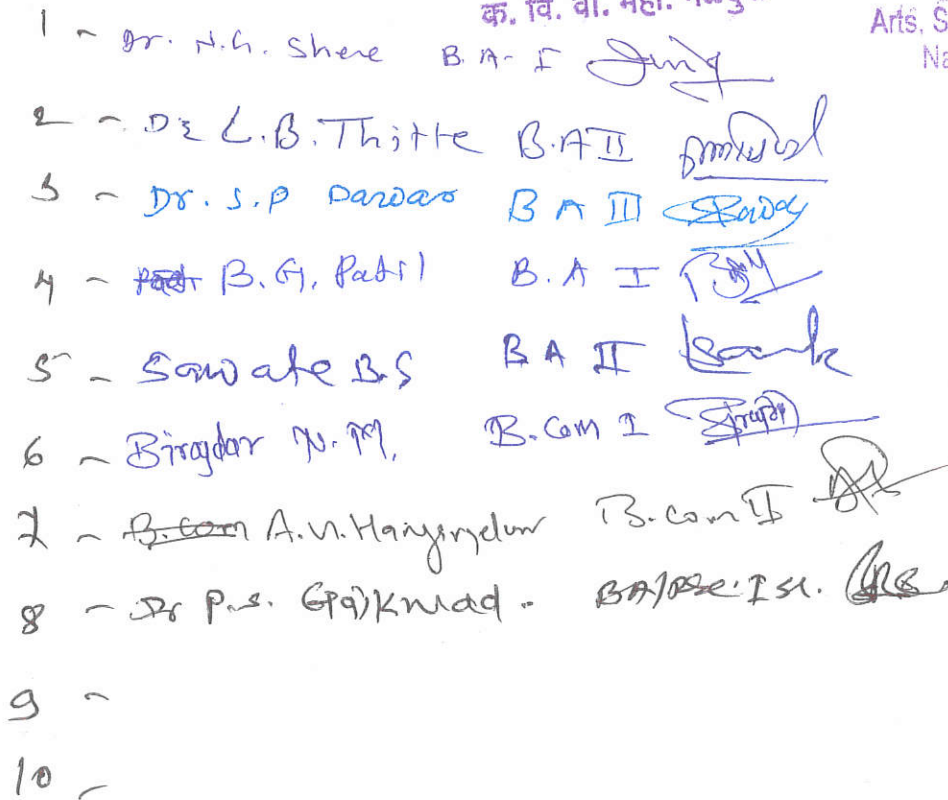 क. वि. वा. महा.
Arts, S
Na
1 - Dr. N.G. Shere B.A- I
2 - Dr L.B. Thitte B.A II
3 - Dr. S.P Dawar B A III
4 - B.G. Patil B.A I
5 - Sawate B.S B A II
6 - Birajdar N.M. B.Com I
7 - B.com A.V. B.com II
8 - Dr P.S. Gaikwad. I
9 -
10 -